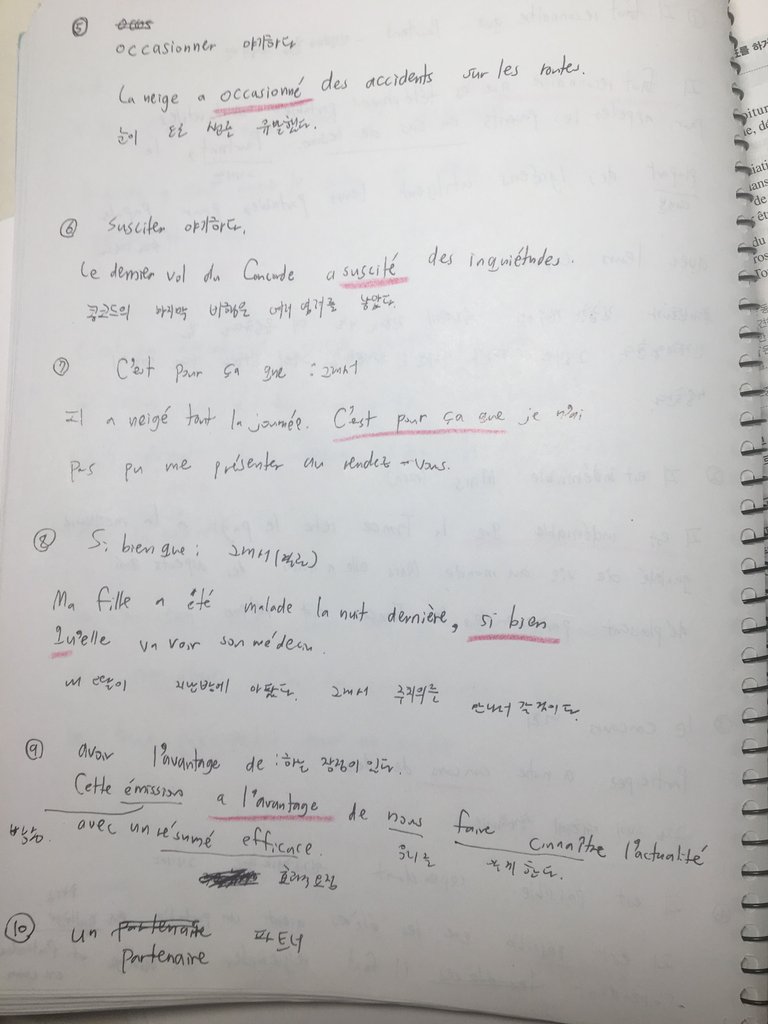 ⑤
occasionner 야기하다
La neige a occasionné des accidents sur les routes.
눈이 도로 사고를 유발했다.
⑥ Susciter 야기하다.
Le dernier vol du Concorde a suscité des inquiétudes.
콩코드의 마지막 비행은 여러 염려를 낳았다.
⑦ C'est pour ça que : 그래서
Il a neigé tout la journée. C'est pour ça que je n'ai
pas pu me présenter au rendez-vous.
⑧ Si bien que : 그래서 (결과)
Ma fille a été malade la nuit dernière, si bien
qu'elle va voir son médecin.
내 딸이 지난밤에 아팠다. 그래서 주치의를 만나러 갈 것이다.
⑨ avoir l'avantage de : 하는 장점이 있다.
Cette émission a l'avantage de nous faire connaître l'actualité
방송. avec un résumé efficace. 우리를 알게 한다.
효과적 요점
⑩ un partenaire 파트너